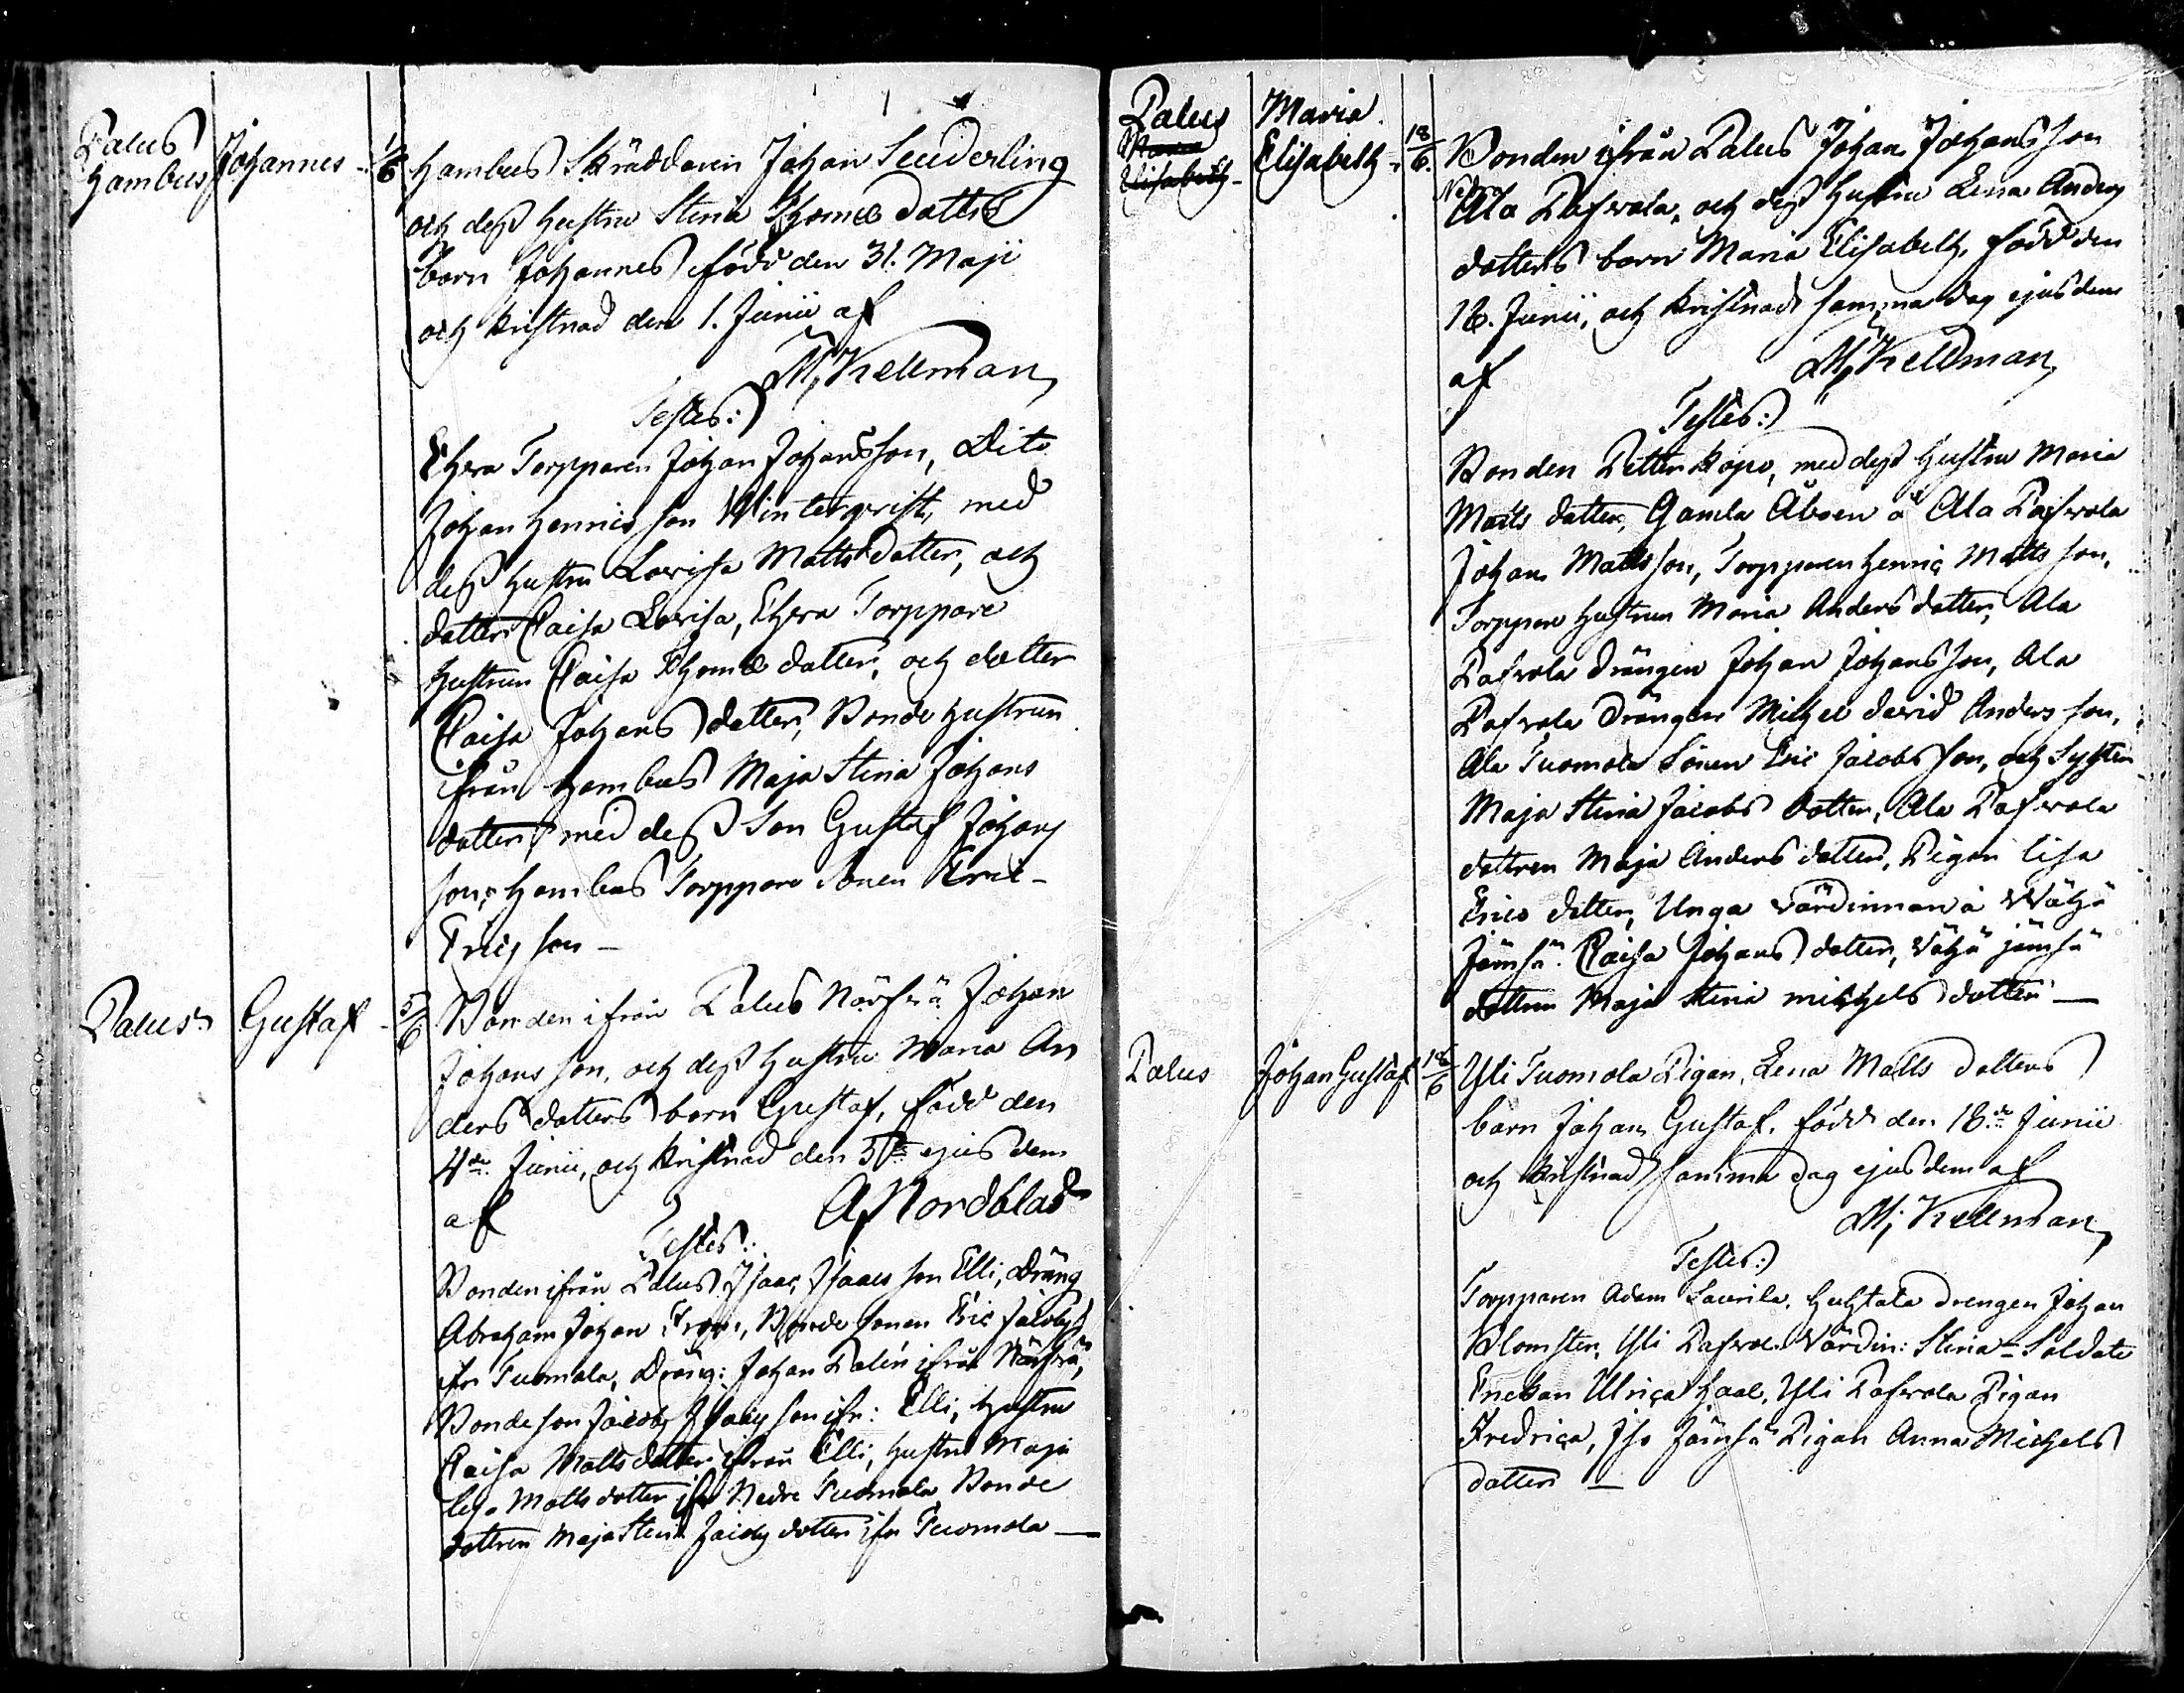 Palus
Hambus
Johannes
1/6
Hambus Skräddaren Johan Seuderling
och dess hustru Stina Thomæ dotters
barn Johannes född den 31. Maji
och kristnad den 1. Junii af
M: Kellman
Testes:
Torpparen Johan Johansson, Dito
Johan Henrics son Winterqvist, med
dess hustru Lovisa Matts dotter, och
dotter Caisa Lovisa, Torppare
hustrun Caisa Thomæ dotter, och dotter
Caisa Johans dotter, Bonde hustrun
ifrån Hambus Maja Stina Johans
dotter, med dess Son Gustaf Johans
son, Hambus Torppare Sonen Eric
Erics son —
Palus
Gustaf
5/6
Bonden ifrån Palus Närfvä Johan
Johans son, och dess hustru Maria An
ders dotters barn Gustaf, född den
4de Junii, och kristnad den 5te ejusdem
af A Nordblad
Testes:
Bonden ifrån Palus Isaac Isaacs son Elli, Dräng
Abraham Johan Bonde sonen Eric Jacobss
ifr Tuomola, Dräng: Johan Palén ifrån Närfvä,
Bonde son Jacob Isaacs son ifr: Elli, hustru
Caisa Matts dotter ifrån Elli, hustru Maja
Lisa Matts dotter ifr Nedre Tuomola Bonde
dottren Maja Stina Jacobs dotter ifr Tuomola —
Palus
Maria
Elisabeth
Maria
Elisabeth
18/6.
Bonden ifrån Palus Johan Johansson
Ala Pafvola, och dess hustru Lena Anders
dotters barn Maria Elisabeth, född den
18. Junii, och kristnad samma dag ejusdem
af M: Kellman
Testes:
Bonden Petter Kopo, med dess hustru Maria
Matts dotter, Gamla Åboen å Ala Pafvola
Johan Mattsson, Torpparen Henric Matts son,
Torppare hustrun Maria Anders dotter, Ala
Pafvola drängen Johan Johansson, Ala
Pafvola Drängen Michel David Anders son,
Ala Tuomola Sonen Eric Jacobs son, och Systern
Maja Stina Jacobs dotter, Ala Pafvola
dottren Maja Anders dotter, Pigan Lisa
Erics dotter, Unga värdinnan å Wähä
Jämsä. Caisa Johans dotter, Vähä Jämsä
dottren Maja Stina Michels dotter —
Palus
Johan Gustaf
18/6
Yli Tuomola Pigan, Lena Matts dotters
barn Johan Gustaf, född den 18de Junii
och kristnad samma dag ejusdem af
M: Kellman
Testes:
Torpparen Adam Laurila, Huhtala drengen Johan
Blomster, Yli Pafvol. Värdin: Stina Soldate
Enckan Ulrica Haal, Yli Pafvola Pigan
Fredrica, Iso Jämsä Pigan Anna Michels
dotter —